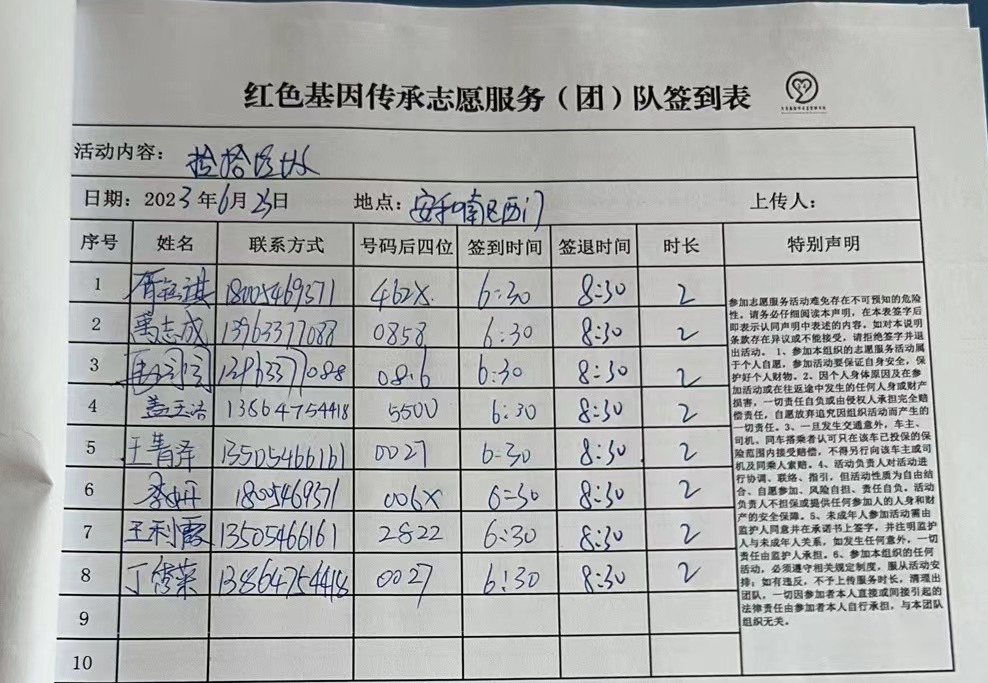 红色基因传承志愿服务（团）队签到表
活动内容：捡拾垃圾
日期：2023年6月25日 地点：安和南区西门 上传人：
序号 姓名 联系方式 号码后四位 签到时间 签退时间 时长 特别声明
1 18005469371 462X 6:30 8:30 2
2 志成 13963377088 0858 6:30 8:30 2
3 13963377088 0816 6:30 8:30 2
4 盖玉洁 13864754418 5500 6:30 8:30 2
5 王青泽 13505466161 0027 6:30 8:30 2
6 18005469371 006X 6:30 8:30 2
7 王利霞 13505466161 2822 6:30 8:30 2
8 丁秀荣 13864754418 0027 6:30 8:30 2
9
10
参加志愿服务活动难免存在不可预知的危险
性，请务必仔细阅读本声明，在本表签字后
即表示认同声明中表述的内容。如对本说明
条款存在异议或不能接受，请拒绝签字并退
出活动。 1、参加本组织的志愿服务活动属
于个人自愿，参加活动要保证自身安全，保
护好个人财物。2、因个人身体原因及在参
加活动或在往返途中发生的任何人身或财产
损害，一切责任自负或由侵权人承担完全赔
偿责任，自愿放弃追究因组织活动而产生的
一切责任。3、一旦发生交通意外，车主、
司机、同车搭乘者认可只在该车已投保的保
险范围内接受赔偿，不得另行向该车主或司
机及同乘人索赔。4、活动负责人对活动进
行协调、联络、指引，但活动性质为自由结
合、自愿参加、风险自担、责任自负。活动
负责人不担保或提供任何参加人的人身和财
产的安全保障。5、未成年人参加活动需由
监护人同意并在承诺书上签字，并注明监护
人与未成年人关系，如发生任何意外，一切
责任由监护人承担。6、参加本组织的任何
活动，必须遵守相关规定制度，服从活动安
排；如有违反，不予上传服务时长，清理出
团队，一切因参加者本人直接或间接引起的
法律责任由参加者本人自行承担，与本团队
组织无关。